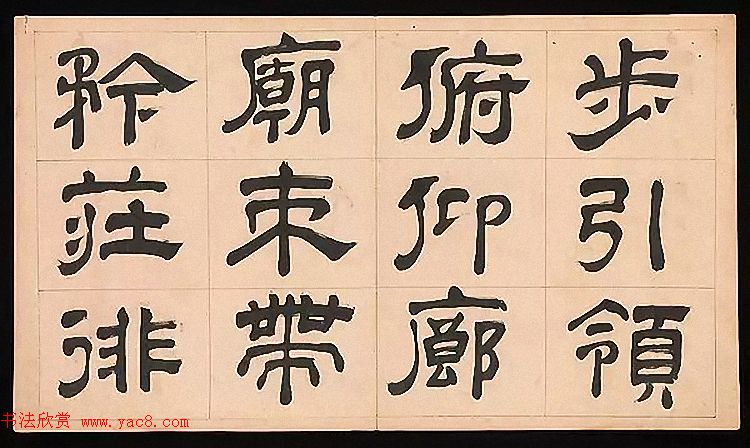 步引領
俯仰廊
廟束帶
矜莊徘
书法欣赏 www.yac8.com